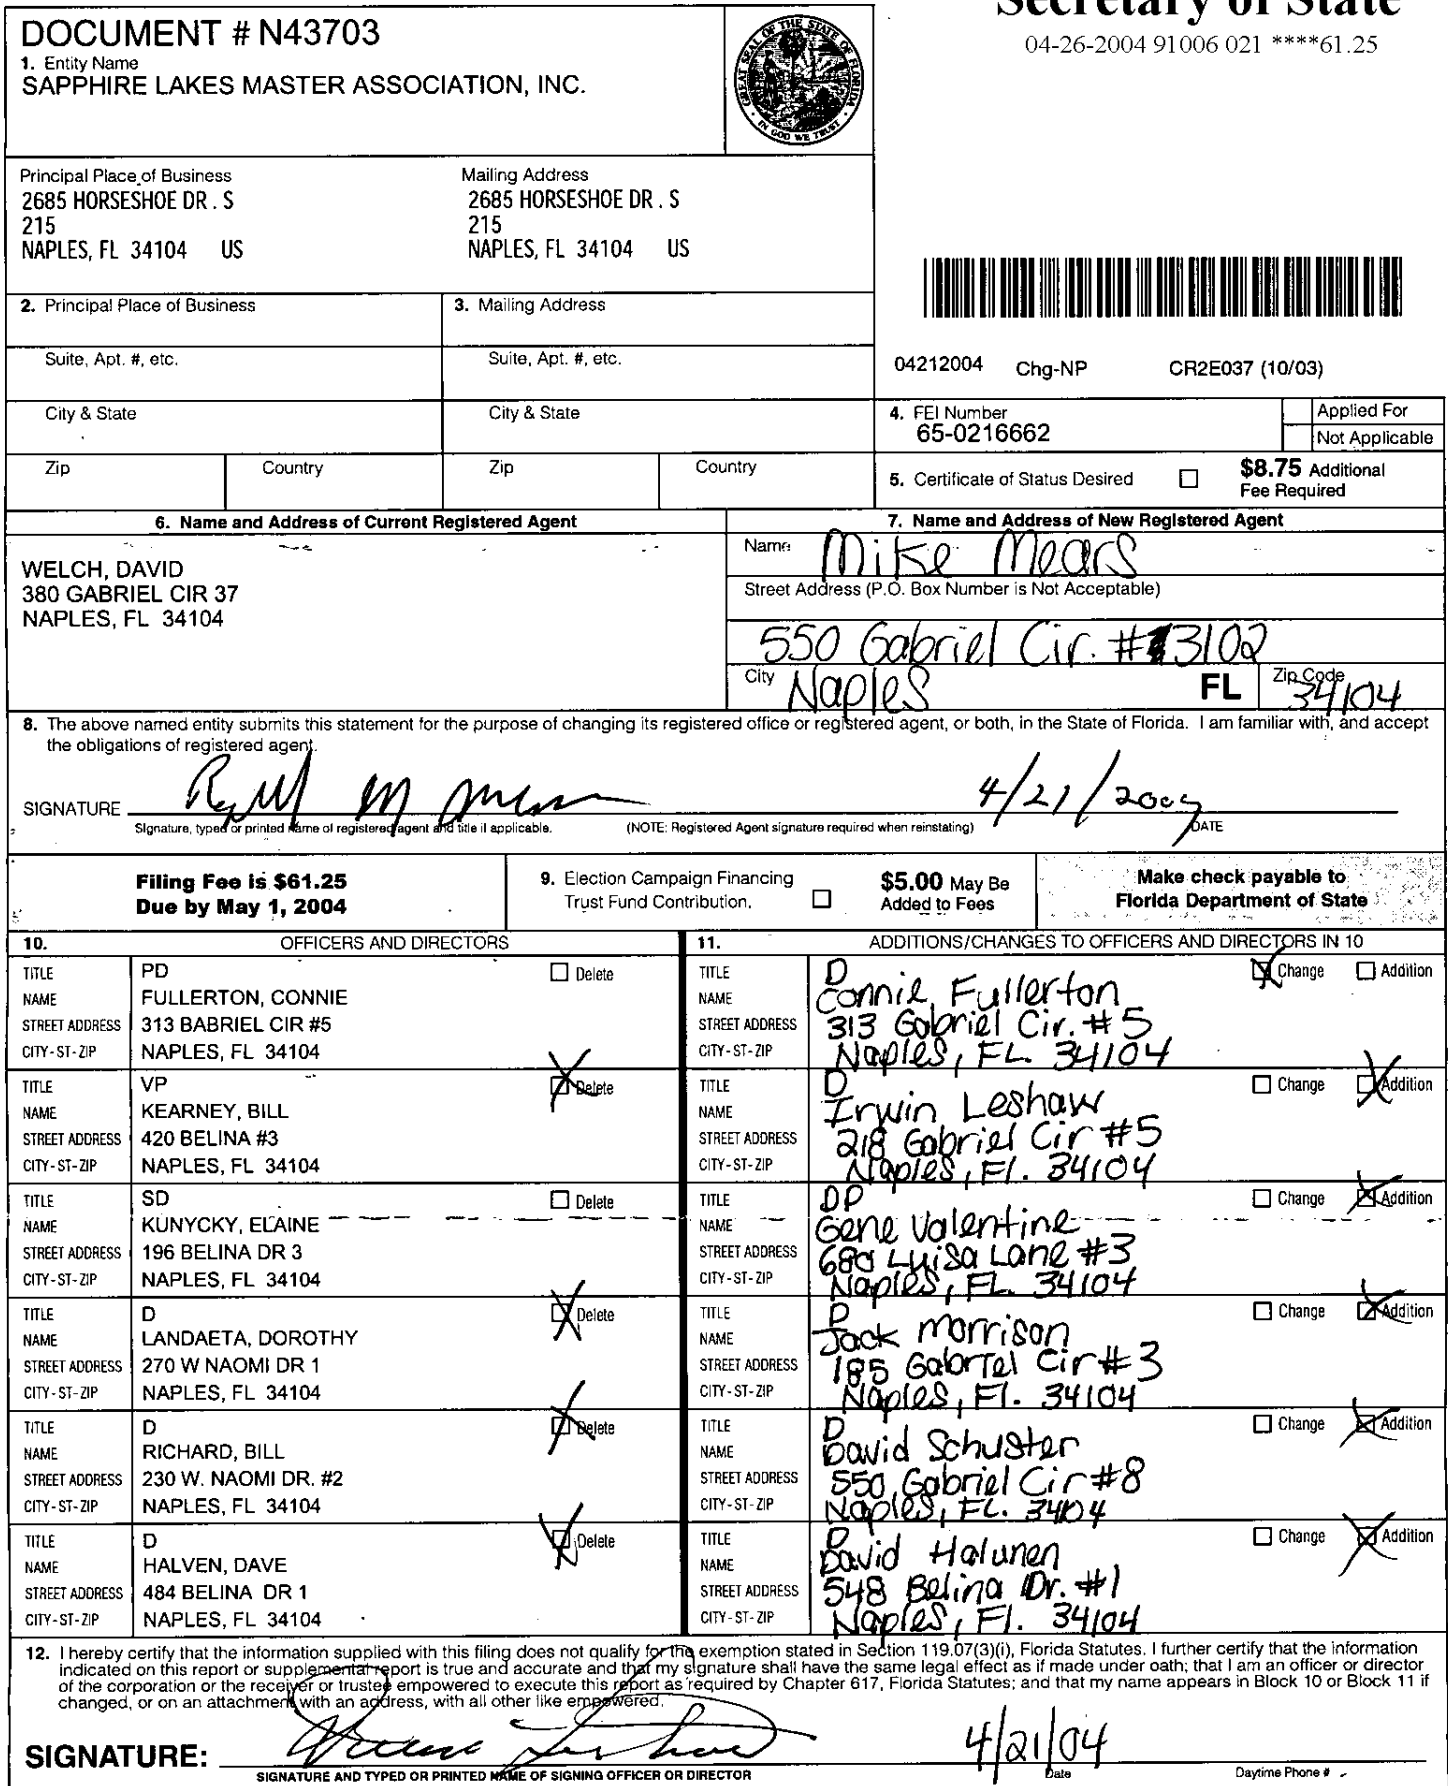 Secretary of State
04-26-2004 91006 021 ****61.25
DOCUMENT # N43703
1. Entity Name
SAPPHIRE LAKES MASTER ASSOCIATION, INC.
GREAT SEAL OF THE STATE OF FLORIDA
IN GOD WE TRUST
Principal Place of Business
2685 HORSESHOE DR . S
215
NAPLES, FL 34104 US
Mailing Address
2685 HORSESHOE DR . S
215
NAPLES, FL 34104 US
2. Principal Place of Business
3. Mailing Address
Suite, Apt. #, etc.
Suite, Apt. #, etc.
04212004 Chg-NP CR2E037 (10/03)
City & State
City & State
4. FEI Number
65-0216662
Applied For
Not Applicable
Zip
Country
Zip
Country
5. Certificate of Status Desired
$8.75 Additional
Fee Required
6. Name and Address of Current Registered Agent
WELCH, DAVID
380 GABRIEL CIR 37
NAPLES, FL 34104
7. Name and Address of New Registered Agent
Name Mike Mears
Street Address (P.O. Box Number is Not Acceptable)
550 Gabriel Cir. #3102
City Naples FL Zip Code 34104
8. The above named entity submits this statement for the purpose of changing its registered office or registered agent, or both, in the State of Florida. I am familiar with, and accept
the obligations of registered agent.
SIGNATURE 4/21/2004
Signature, typed or printed name of registered agent and title if applicable. (NOTE: Registered Agent signature required when reinstating) DATE
Filing Fee is $61.25
Due by May 1, 2004
9. Election Campaign Financing
Trust Fund Contribution.
$5.00 May Be
Added to Fees
Make check payable to
Florida Department of State
10. OFFICERS AND DIRECTORS
11. ADDITIONS/CHANGES TO OFFICERS AND DIRECTORS IN 10
TITLE PD Delete
NAME FULLERTON, CONNIE
STREET ADDRESS 313 BABRIEL CIR #5
CITY-ST-ZIP NAPLES, FL 34104
TITLE D Change Addition
NAME Connie Fullerton
STREET ADDRESS 313 Gabriel Cir. #5
CITY-ST-ZIP Naples, FL. 34104
TITLE VP Delete
NAME KEARNEY, BILL
STREET ADDRESS 420 BELINA #3
CITY-ST-ZIP NAPLES, FL 34104
TITLE D Change Addition
NAME Irwin Leshaw
STREET ADDRESS 218 Gabriel Cir #5
CITY-ST-ZIP Naples, Fl. 34104
TITLE SD Delete
NAME KUNYCKY, ELAINE
STREET ADDRESS 196 BELINA DR 3
CITY-ST-ZIP NAPLES, FL 34104
TITLE DP Change Addition
NAME Gene Valentine
STREET ADDRESS 680 Luisa Lane #3
CITY-ST-ZIP Naples, FL. 34104
TITLE D Delete
NAME LANDAETA, DOROTHY
STREET ADDRESS 270 W NAOMI DR 1
CITY-ST-ZIP NAPLES, FL 34104
TITLE D Change Addition
NAME Jack Morrison
STREET ADDRESS 185 Gabriel Cir #3
CITY-ST-ZIP Naples, Fl. 34104
TITLE D Delete
NAME RICHARD, BILL
STREET ADDRESS 230 W. NAOMI DR. #2
CITY-ST-ZIP NAPLES, FL 34104
TITLE D Change Addition
NAME David Schuster
STREET ADDRESS 550 Gabriel Cir #8
CITY-ST-ZIP Naples, FL. 34104
TITLE D Delete
NAME HALVEN, DAVE
STREET ADDRESS 484 BELINA DR 1
CITY-ST-ZIP NAPLES, FL 34104
TITLE D Change Addition
NAME David Halunen
STREET ADDRESS 548 Belina Dr. #1
CITY-ST-ZIP Naples, Fl. 34104
12. I hereby certify that the information supplied with this filing does not qualify for the exemption stated in Section 119.07(3)(i), Florida Statutes. I further certify that the information
indicated on this report or supplemental report is true and accurate and that my signature shall have the same legal effect as if made under oath; that I am an officer or director
of the corporation or the receiver or trustee empowered to execute this report as required by Chapter 617, Florida Statutes; and that my name appears in Block 10 or Block 11 if
changed, or on an attachment with an address, with all other like empowered.
SIGNATURE: 4/21/04
SIGNATURE AND TYPED OR PRINTED NAME OF SIGNING OFFICER OR DIRECTOR Date Daytime Phone #